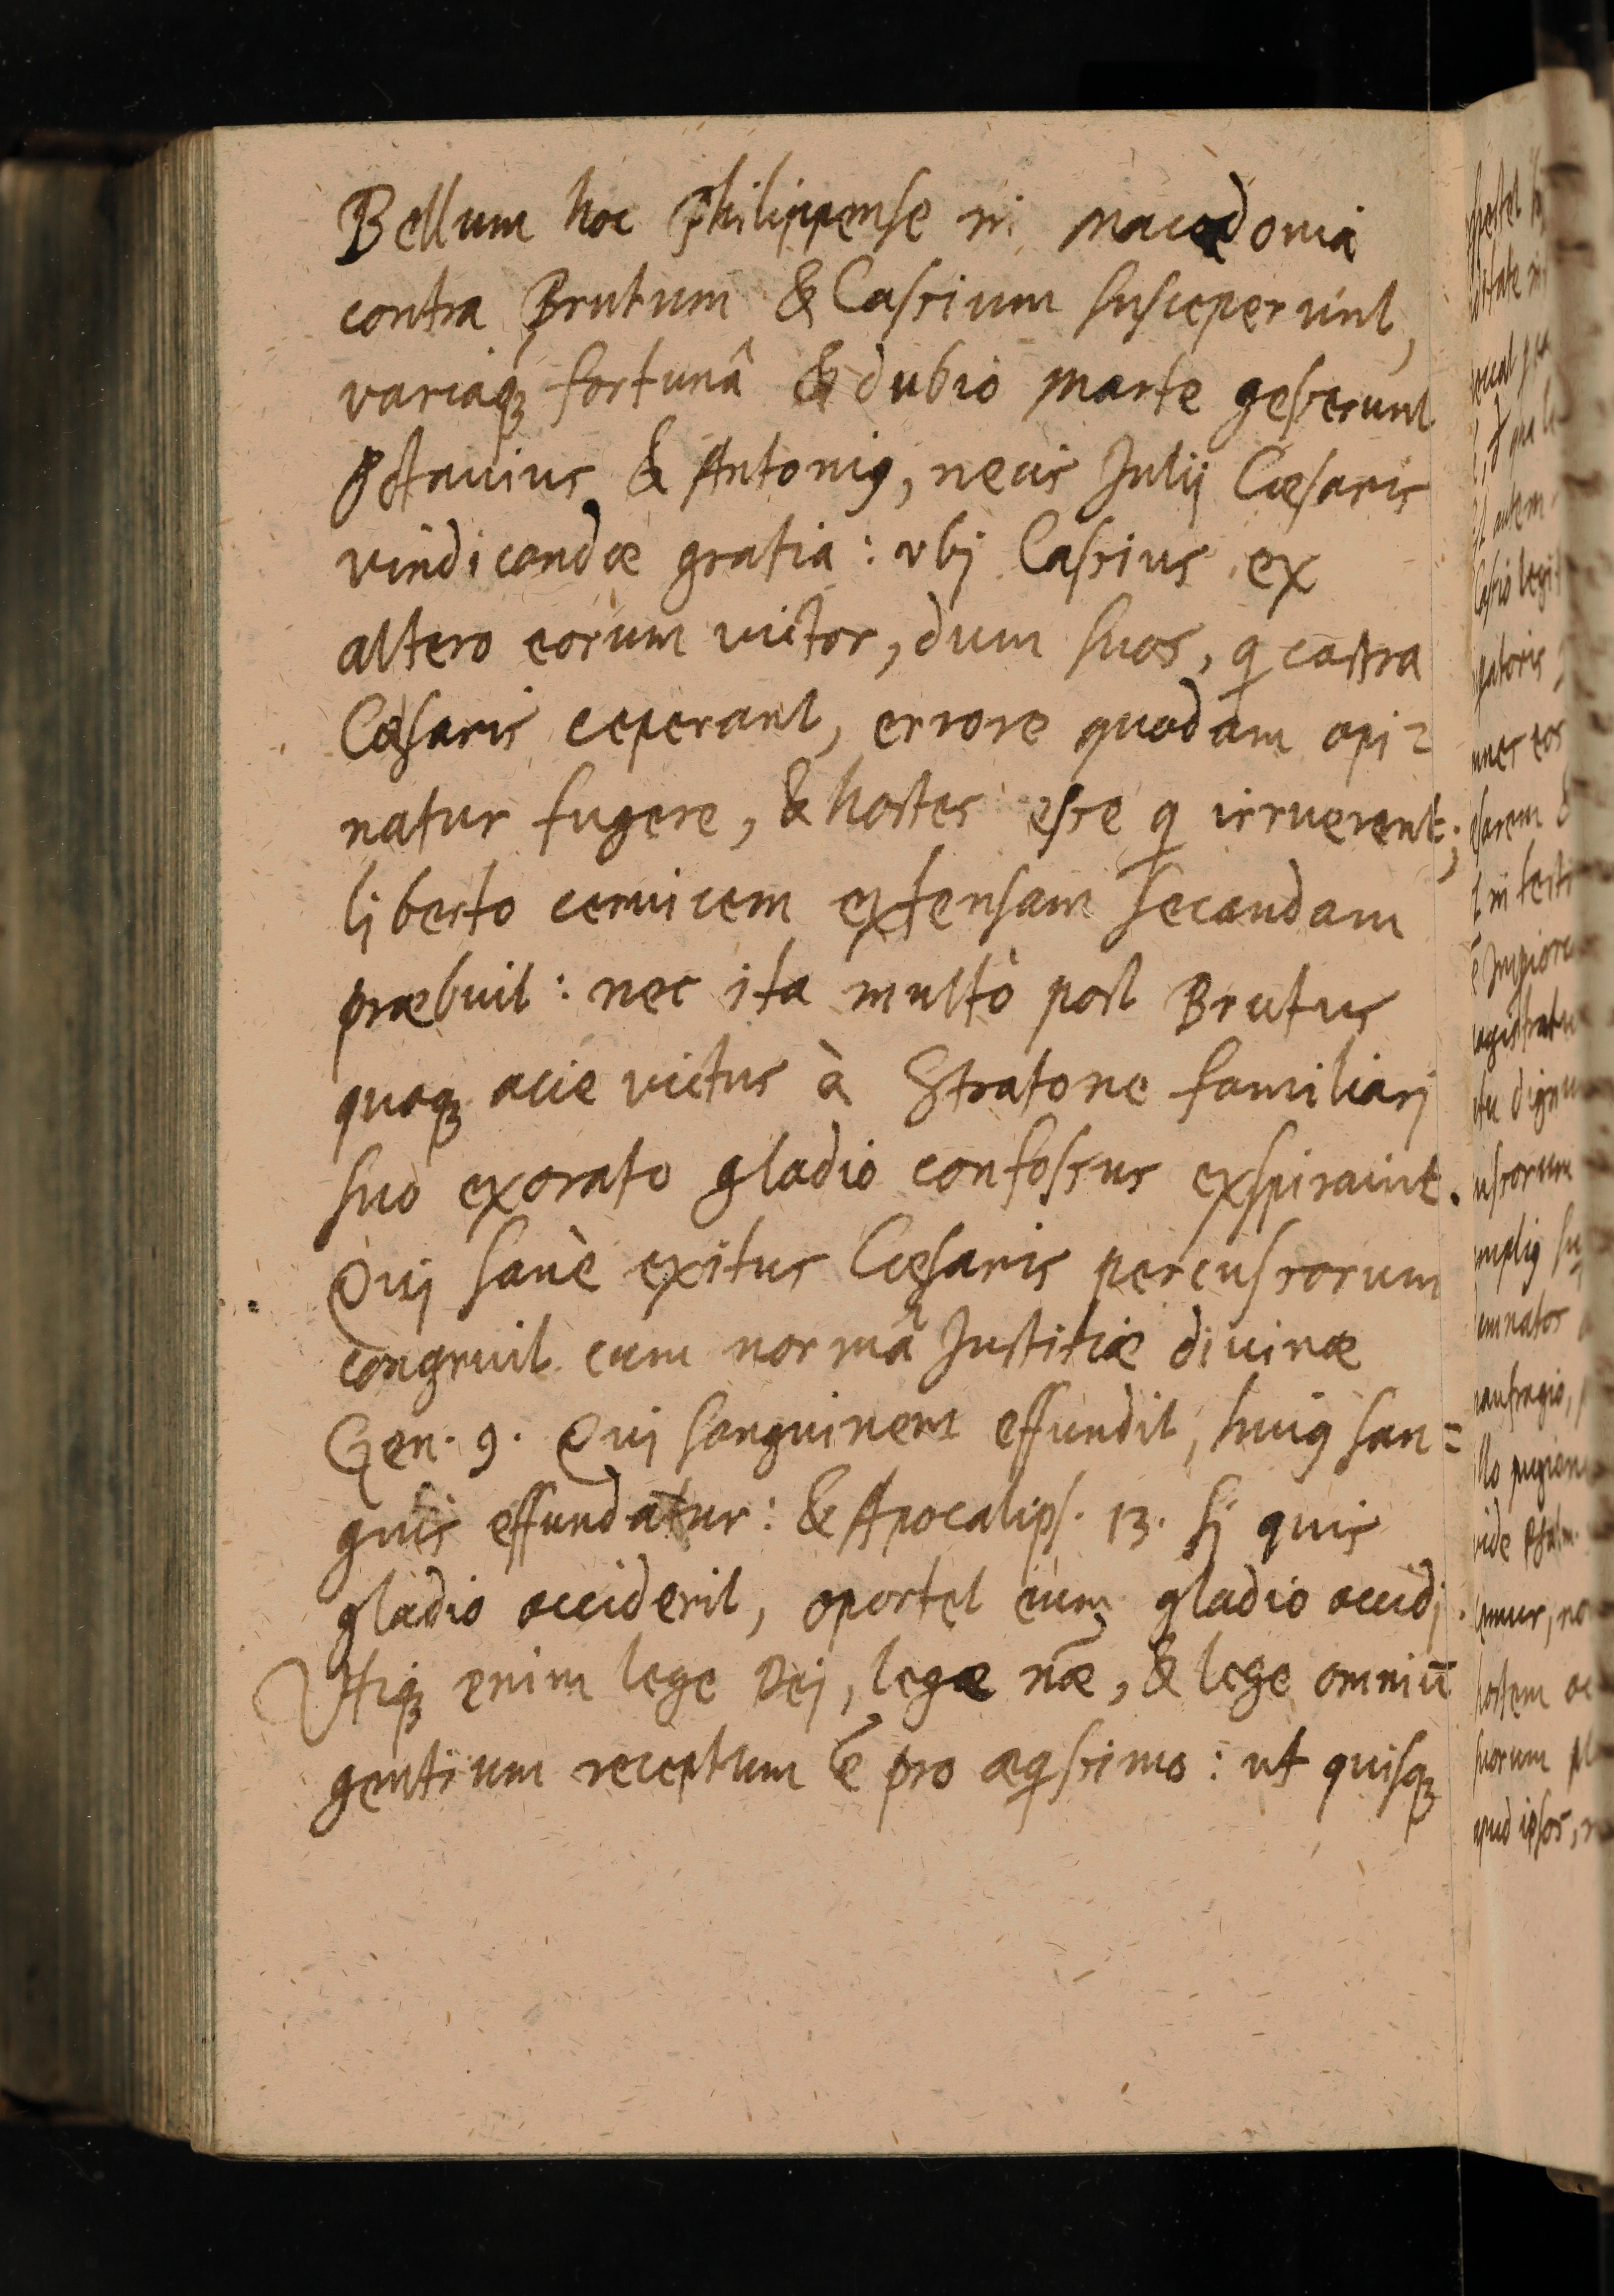 Bellum hoc Philippense in Macedonia
contra Brutum & Cassium susceperunt,
variaq; fortunâ & dubio marte gesserunt
Octauius & Antoni9, necis Julij Cæsaris
vindicandæ gratia: vbj Cassius ex
altero eorum victor, dum suos, q castra
Cæsaris ceperant, errore quodam opi=
natur fugere, & hostes esse q irruerent;
ljberto ceruicem extensam secandam
præbuit: nec ita multò post Brutus
quoq; acie victus à Stratone familiarj
suo exorato gladio confossus exspirauit.
Quj sanè exitus Cæsaris percussorum
congruit cum normâ Justitiæ diuinæ
Gen. 9. Quj sanguinem effundit, hui9 san=
guis effundatur: & Apocalips. 13. sj quis
gladio occiderit, oportet eum gladio occidj.
Vtiq; enim lege Dej, lege næ, & lege omniū
gentium receptum ē pro æqssimo: ut quisq;